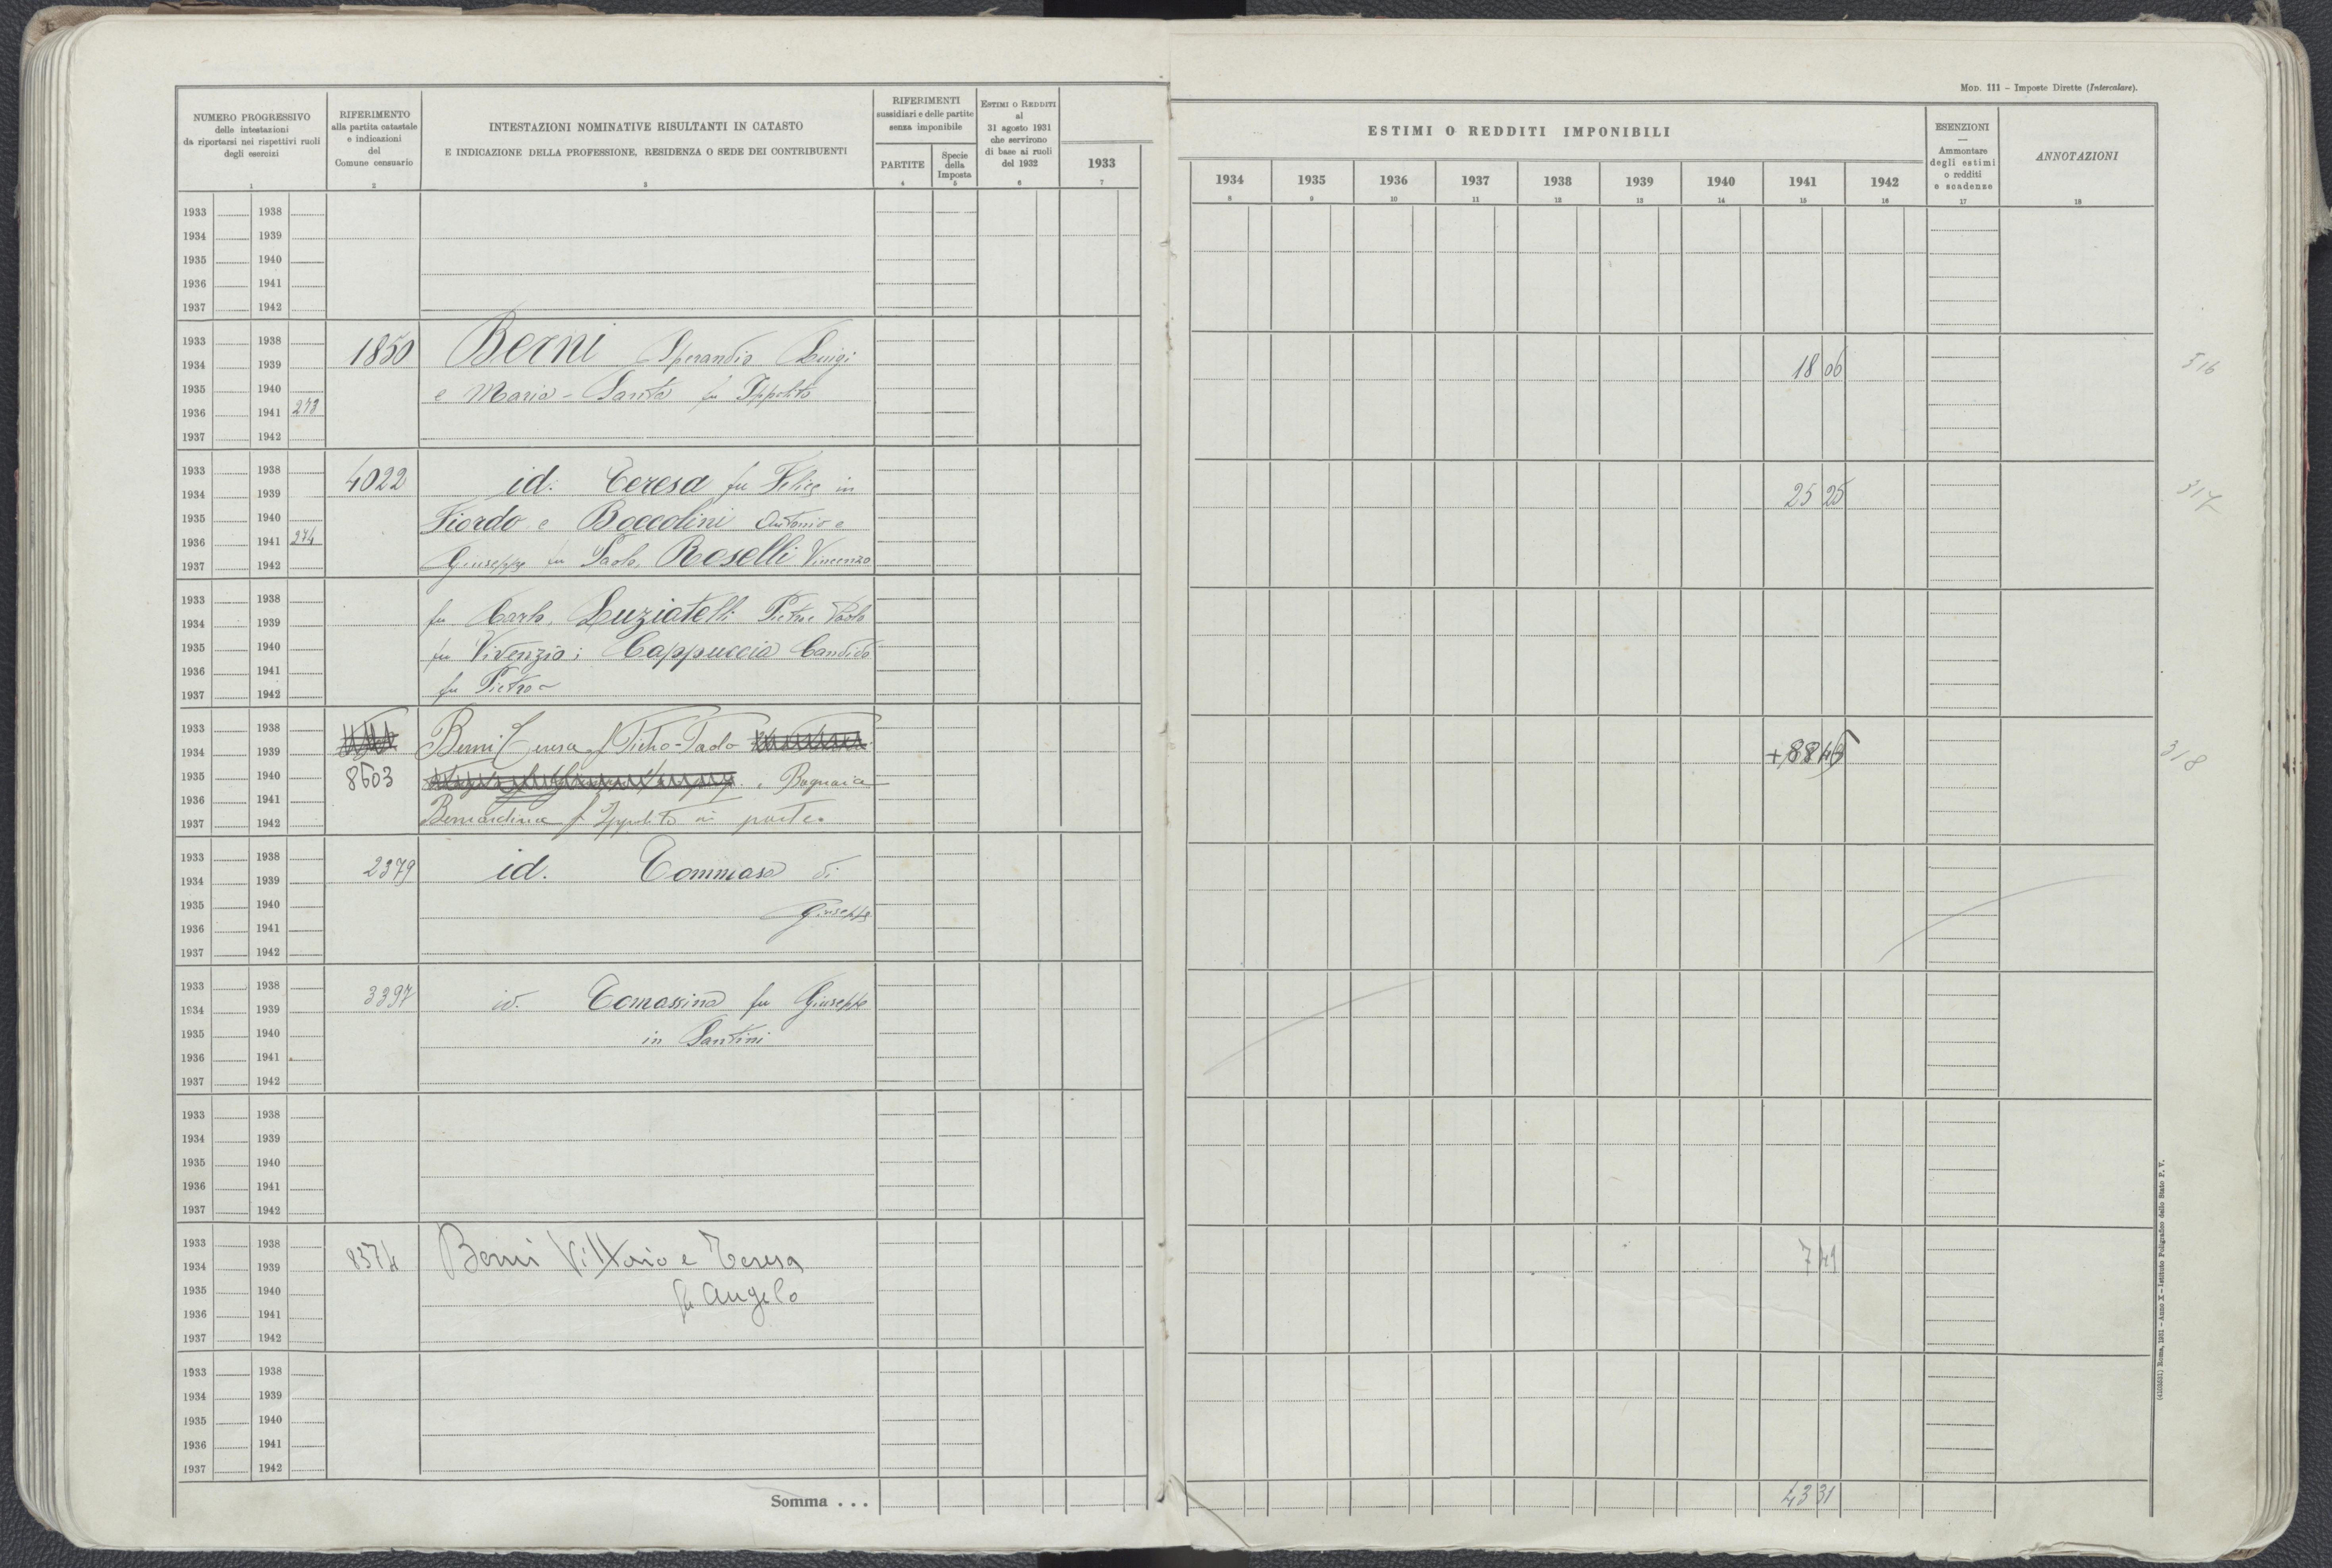 MOD. 111 - Imposte Dirette (Intercalare).
NUMERO PROGRESSIVO
delle intestazioni
da riportarsi nei rispettivi ruoli
degli esercizi
1
RIFERIMENTO
alla partita catastale
e indicazioni
del
Comune censuario
2
INTESTAZIONI NOMINATIVE RISULTANTI IN CATASTO
E INDICAZIONE DELLA PROFESSIONE, RESIDENZA O SEDE DEI CONTRIBUENTI
3
RIFERIMENTI
sussidiari e delle partite
senza imponibile
PARTITE
4
Specie
della
Imposta
5
ESTIMI O REDDITI
al
31 agosto 1931
che servirono
di base ai ruoli
del 1932
6
1933
7
ESTIMI O REDDITI IMPONIBILI
1934 1935 1936 1937 1938 1939 1940 1941 1942
8 9 10 11 12 13 14 15 16
ESENZIONI
—
Ammontare
degli estimi
o redditi
e scadenze
17
ANNOTAZIONI
18
1933 1938
1934 1939
1935 1940
1936 1941
1937 1942
1933 1938
1850 Berni Sperandio Luigi
1934 1939
18 06 316
1935 1940
e Maria - Santa fu Ippolito
1936 1941 273
1937 1942
1933 1938
4022 id. Teresa fu Felice in
1934 1939
25 25 317
1935 1940
Fiordo e Boccolini Antonio e
1936 1941 274
Giuseppe fu Paolo, Roselli Vincenzo
1937 1942
1933 1938
fu Carlo, Luziatelli Pietro Paolo
1934 1939
1935 1940
fu Vivenzio; Cappuccia Candido
1936 1941
fu Pietro -
1937 1942
1933 1938
Berni f Pietro-Paolo
1934 1939
318
1935 1940
8503 e Bagnaia
1936 1941
Bernardina f Ippolito in parte.
1937 1942
1933 1938
2379 id. Tommaso di
1934 1939
1935 1940
Giuseppe
1936 1941
1937 1942
1933 1938
3397 id. Tomassina fu Giuseppe
1934 1939
1935 1940
in Santini
1936 1941
1937 1942
1933 1938
1934 1939
1935 1940
1936 1941
1937 1942
1933 1938
8374 Berni Vittorio e Teresa
1934 1939
7 41
1935 1940
fu Angelo
1936 1941
1937 1942
1933 1938
1934 1939
1935 1940
1936 1941
1937 1942
Somma . . .
43 31
Roma, 1931 - Anno X - Istituto Poligrafico dello Stato P. V.